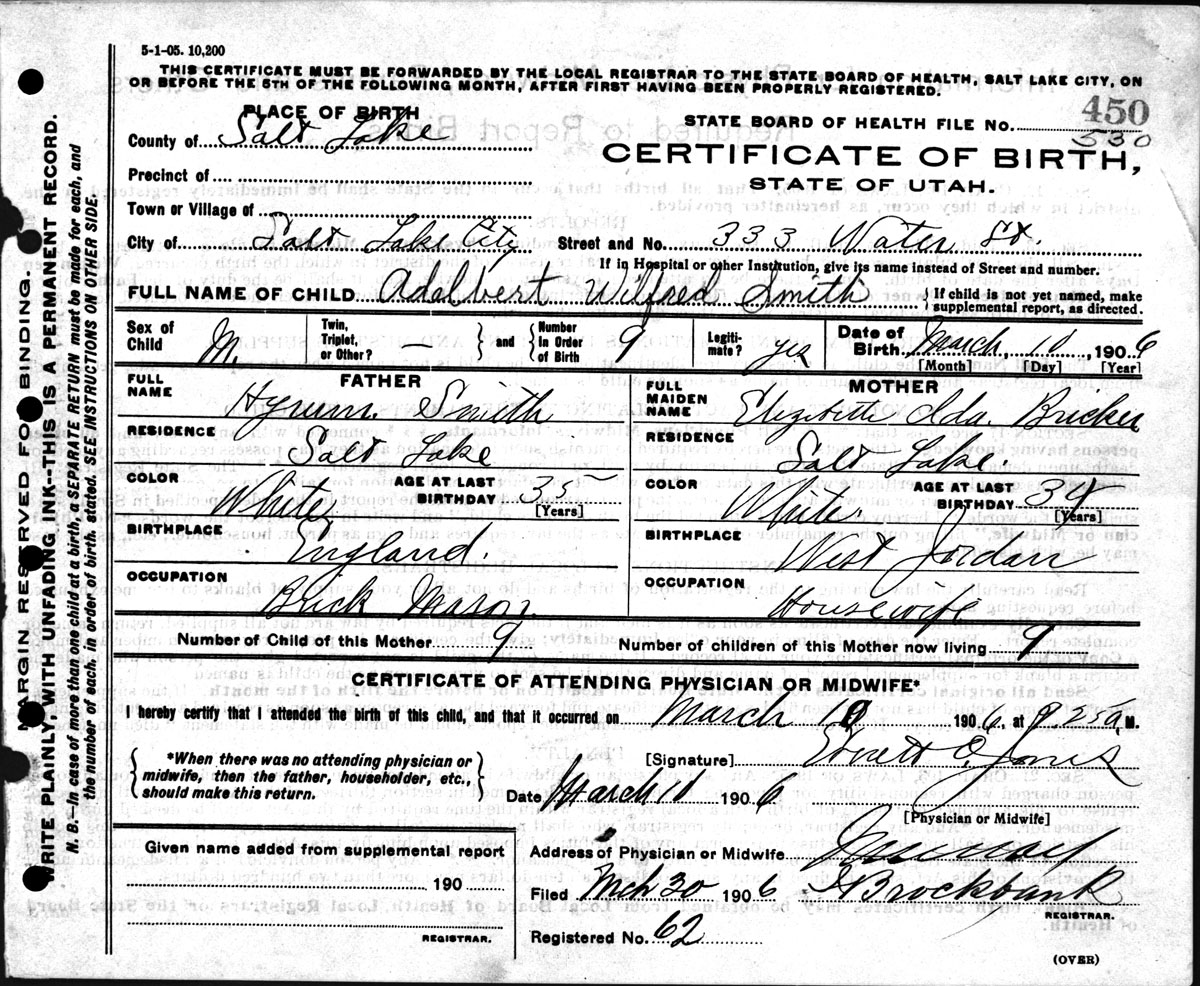 5-1-05. 10,200
THIS CERTIFICATE MUST BE FORWARDED BY THE LOCAL REGISTRAR TO THE STATE BOARD OF HEALTH, SALT LAKE CITY, ON
OR BEFORE THE 5TH OF THE FOLLOWING MONTH, AFTER FIRST HAVING BEEN PROPERLY REGISTERED.
PLACE OF BIRTH
County of Salt Lake
STATE BOARD OF HEALTH FILE No. 450
530
CERTIFICATE OF BIRTH,
STATE OF UTAH.
Precinct of
Town or Village of
City of Salt Lake City Street and No. 333 Water St.
If in Hospital or other Institution, give its name instead of Street and number.
FULL NAME OF CHILD Adalbert Wilfred Smith { If child is not yet named, make supplemental report, as directed.
Sex of Child M. Twin, Triplet, or Other? } and { Number in Order of Birth 9 Legiti-mate? yes Date of Birth March, 10, 1906
[Month] [Day] [Year]
FATHER
FULL NAME Hyrum Smith
RESIDENCE Salt Lake
COLOR White AGE AT LAST BIRTHDAY 35
[Years]
BIRTHPLACE England.
OCCUPATION Brick Mason
MOTHER
FULL MAIDEN NAME Elizabeth Ida. Bricker
RESIDENCE Salt Lake
COLOR White. AGE AT LAST BIRTHDAY 34
[Years]
BIRTHPLACE West Jordan
OCCUPATION Housewife
Number of Child of this Mother 9 Number of children of this Mother now living 9
CERTIFICATE OF ATTENDING PHYSICIAN OR MIDWIFE*
I hereby certify that I attended the birth of this child, and that it occurred on March 10 1906, at M.
{ *When there was no attending physician or midwife, then the father, householder, etc., should make this return. }
[Signature] Jones
Date March 10 1906
[Physician or Midwife]
Given name added from supplemental report
190
REGISTRAR.
Address of Physician or Midwife Murray
Filed Mch 30 1906 Brockbank
REGISTRAR.
Registered No. 62
(OVER)
MARGIN RESERVED FOR BINDING
WRITE PLAINLY, WITH UNFADING INK—THIS IS A PERMANENT RECORD.
N. B.—In case of more than one child at a birth, a SEPARATE RETURN must be made for each, and
the number of each, in order of birth, stated. SEE INSTRUCTIONS ON OTHER SIDE.